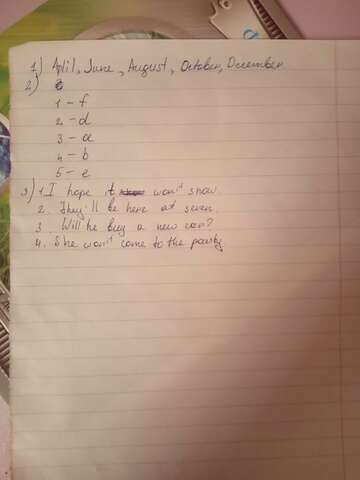 1) April, June, August, October, December
2)
1 - f
2 - d
3 - a
4 - b
5 - e
3) 1. I hope it won't snow.
2. They'll be here at seven.
3. Will he buy a new car?
4. She won't come to the party.